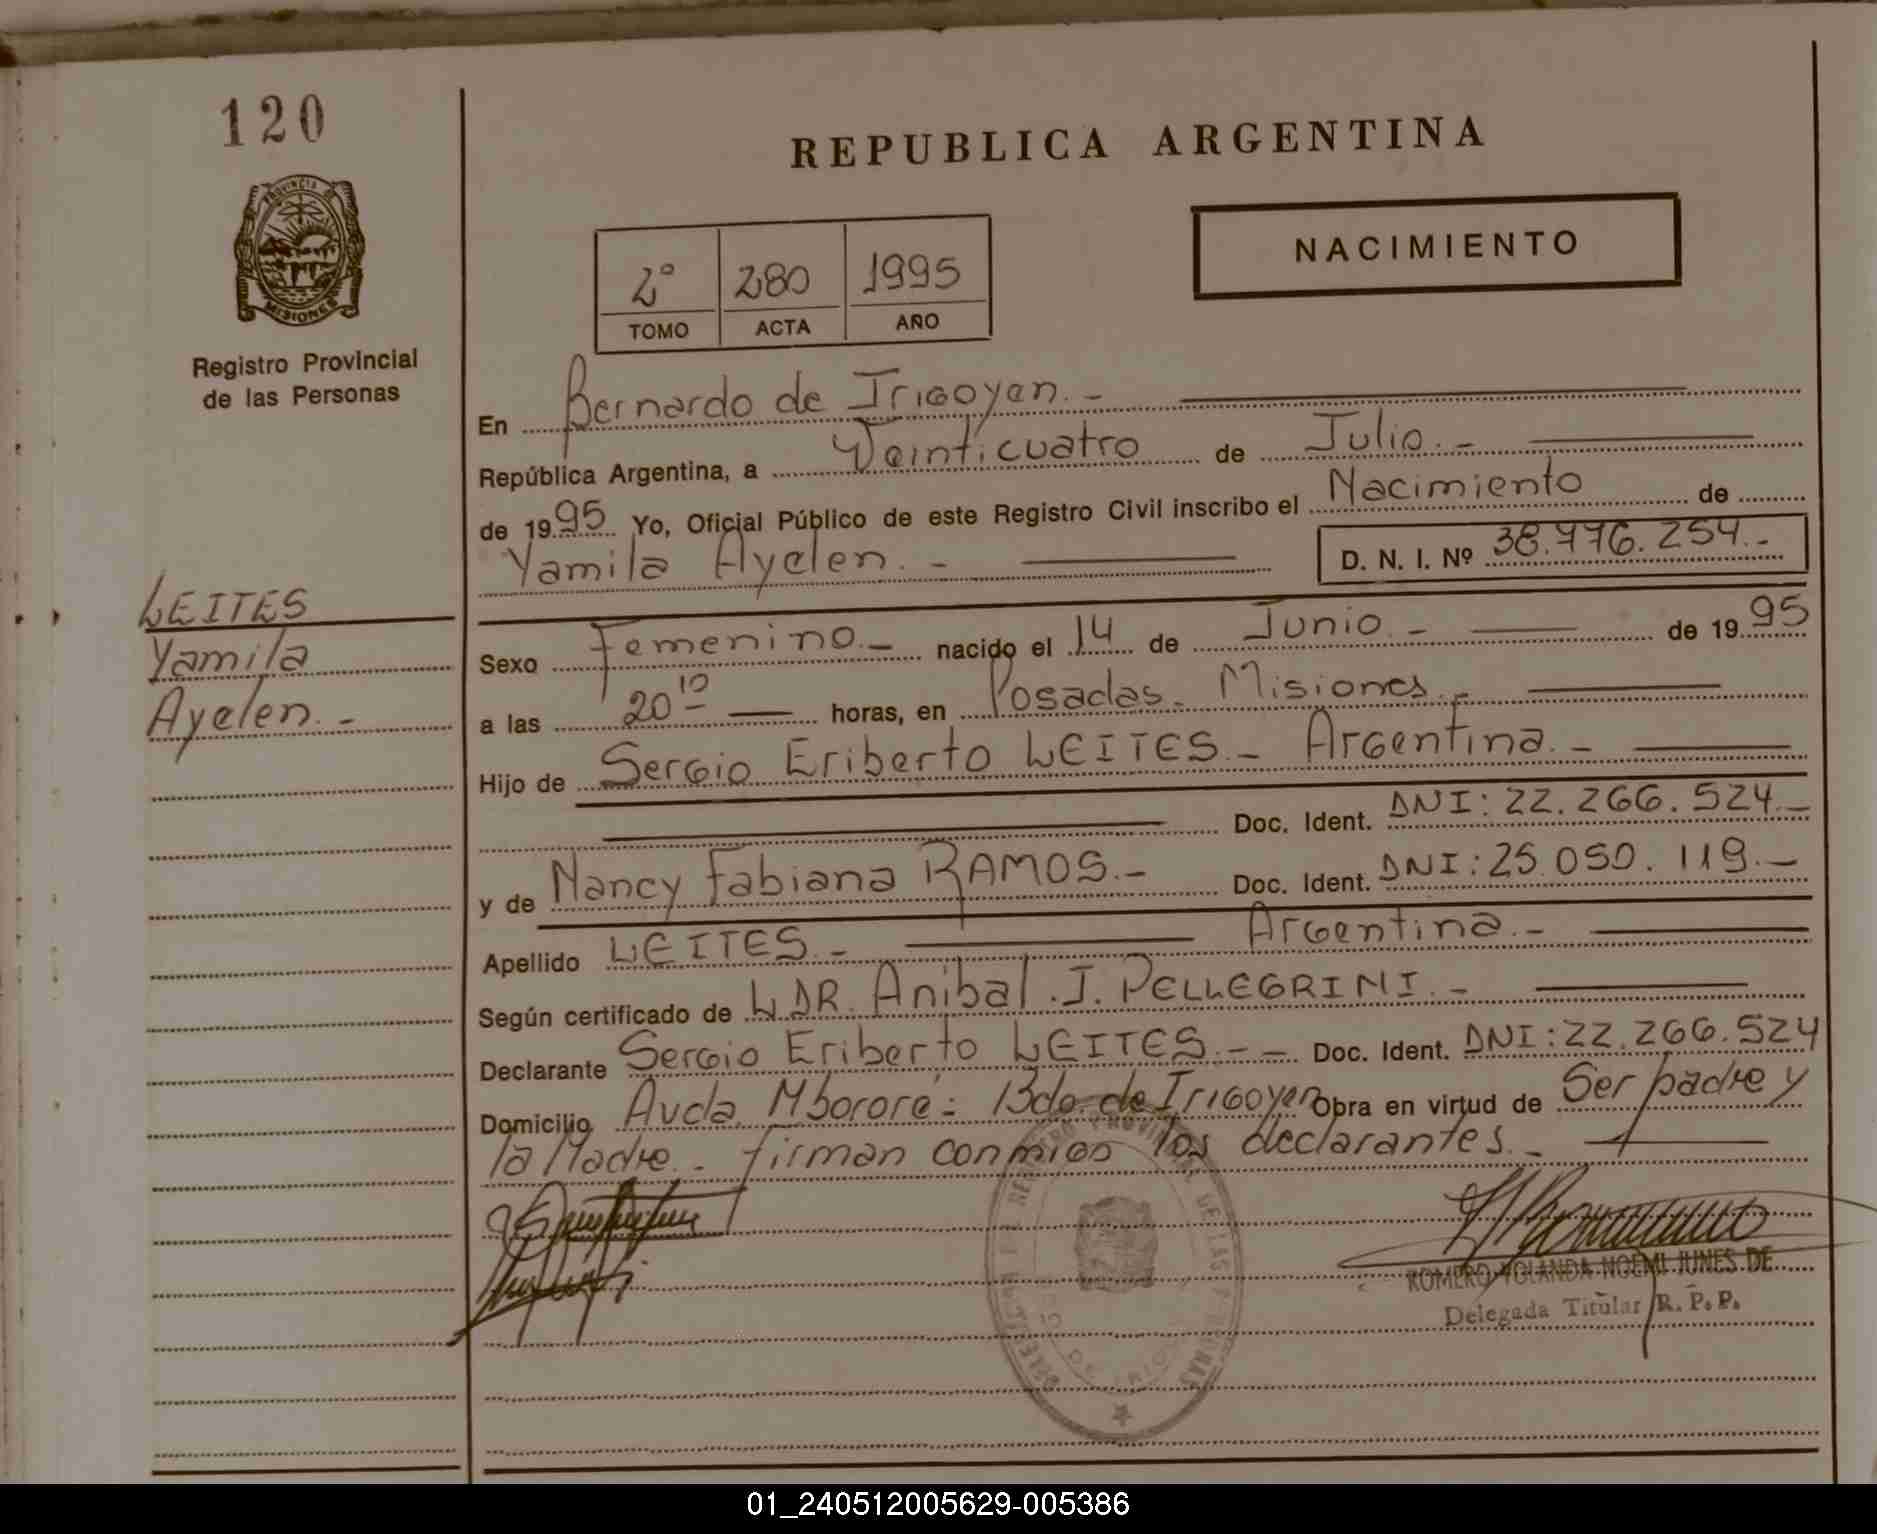 120
REPUBLICA ARGENTINA
PROVINCIA DE
MISIONES
Registro Provincial
de las Personas
2º 280 1995
TOMO ACTA AÑO
NACIMIENTO
En Bernardo de Irigoyen.-
República Argentina, a Veinticuatro de Julio.-
de 1995 Yo, Oficial Público de este Registro Civil inscribo el Nacimiento de
Yamila Ayelen.- D. N. I. Nº 38.776.254.-
LEITES
Yamila
Ayelen.-
Sexo Femenino.- nacido el 14 de Junio.- de 1995
a las 20 10 horas, en Posadas- Misiones.-
Hijo de Sergio Eriberto LEITES.- Argentina.-
Doc. Ident. DNI: 22.266.524.-
y de Nancy Fabiana RAMOS.- Doc. Ident. DNI: 25.050.119.-
Apellido LEITES.- Argentina.-
Según certificado de L DR. Anibal. J. PELLEGRINI.-
Declarante Sergio Eriberto LEITES.-- Doc. Ident. DNI: 22.266.524
Domicilio Avda. Mbororé: Bdo. de Irigoyen Obra en virtud de Ser padre y
la Madre.- firman conmigo los declarantes.-
ROMERO YOLANDA NOEMI JUNES DE
Delegada Titular R. P. P.
01_240512005629-005386